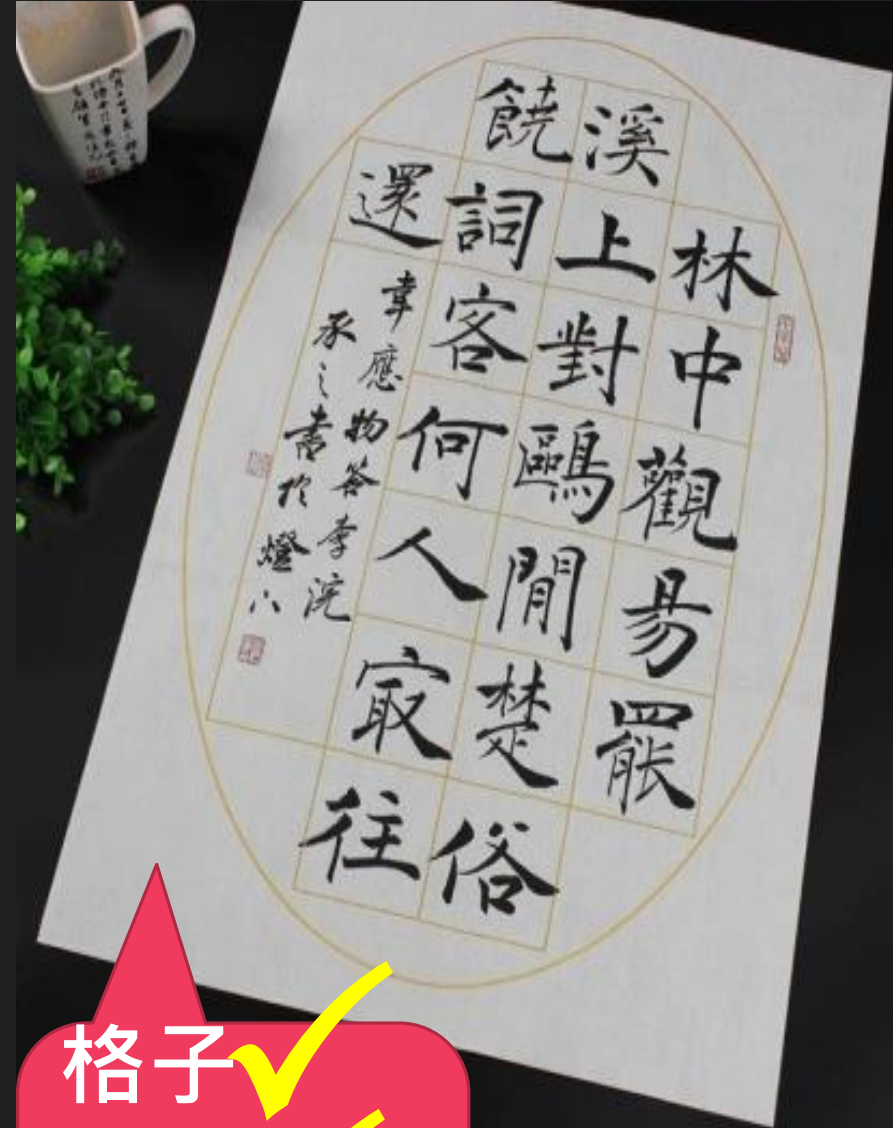 林中觀易罷
溪上對鷗閒楚俗
饒詞客何人㝡往
還
韋應物答李浣
承之書於燈下
格子✓